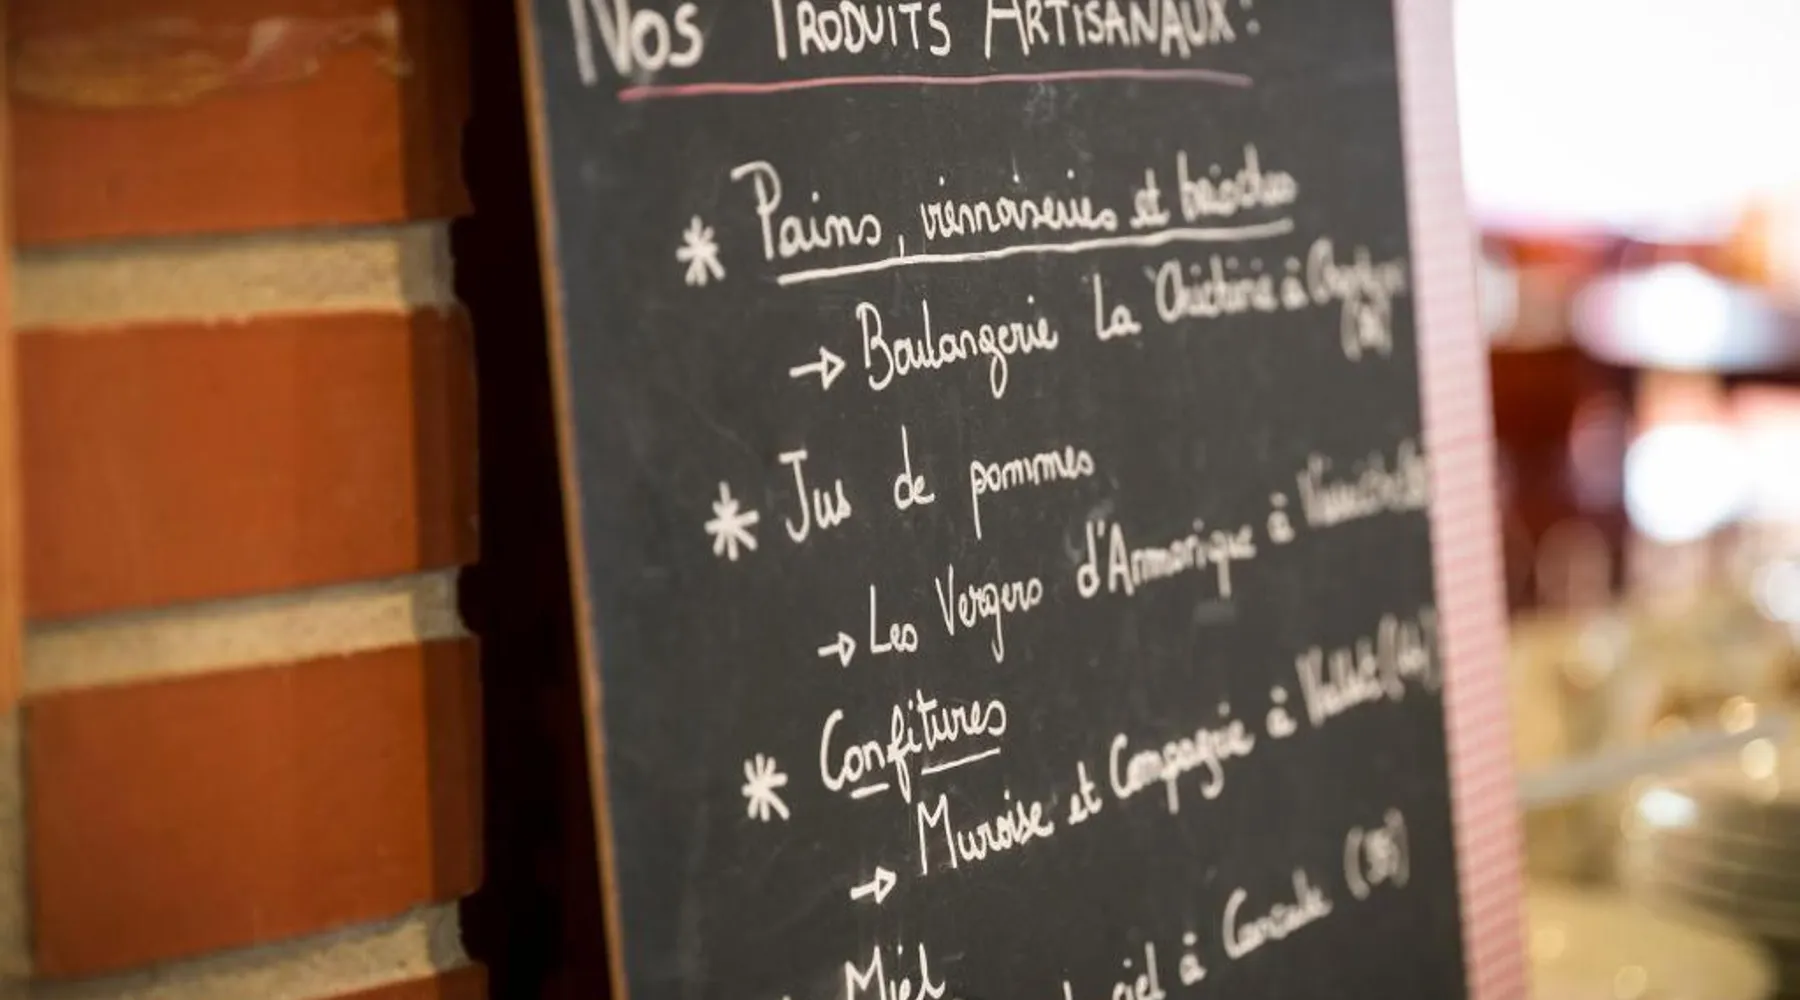 Nos Produits Artisanaux :
* Pains, viennoiseries et brioches
→ Boulangerie La
* Jus de pommes
→ Les Vergers d'Armorique à
* Confitures
→ Muroise et Compagnie à Vallet (44)
Miel
ciel à (35)